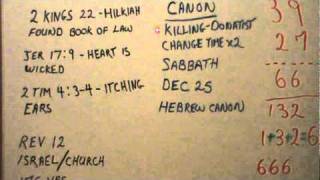 2 KINGS 22 - HILKIAH
FOUND BOOK OF LAW
JER 17:9 - HEART IS
WICKED
2 TIM 4:3-4 - ITCHING
EARS
REV 12
ISRAEL/CHURCH
CANON
KILLING-DONATIST
CHANGE TIME x2
SABBATH
DEC 25
HEBREW CANON
39
27
66
132
1+3+2=6
666